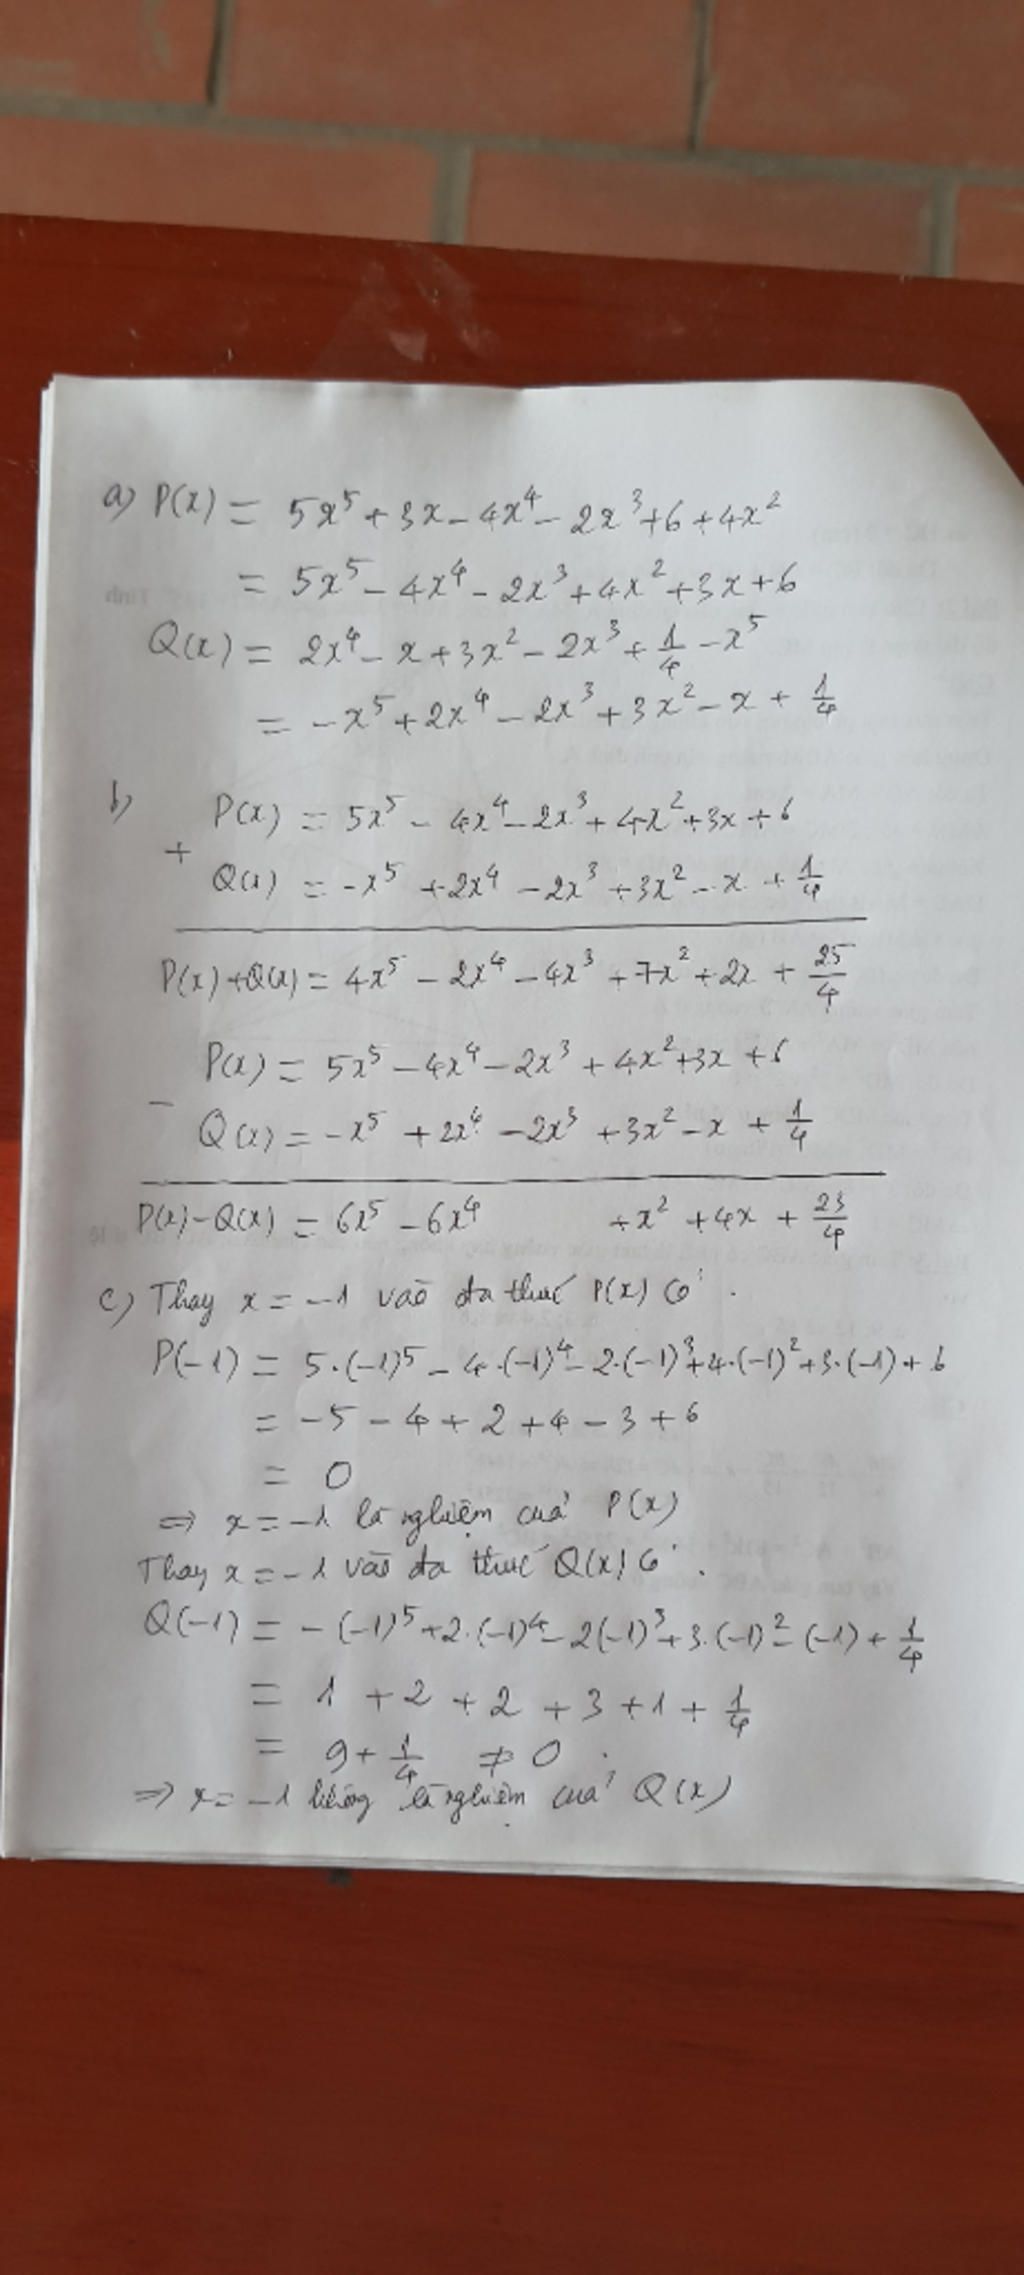 a) P(x) = 5x⁵ + 3x - 4x⁴ - 2x³ + 6 + 4x²
= 5x⁵ - 4x⁴ - 2x³ + 4x² + 3x + 6
Q(x) = 2x⁴ - x + 3x² - 2x³ + 1/4 - x⁵
= -x⁵ + 2x⁴ - 2x³ + 3x² - x + 1/4
b) P(x) = 5x⁵ - 4x⁴ - 2x³ + 4x² + 3x + 6
+
Q(x) = -x⁵ + 2x⁴ - 2x³ + 3x² - x + 1/4
P(x) + Q(x) = 4x⁵ - 2x⁴ - 4x³ + 7x² + 2x + 25/4
P(x) = 5x⁵ - 4x⁴ - 2x³ + 4x² + 3x + 6
-
Q(x) = -x⁵ + 2x⁴ - 2x³ + 3x² - x + 1/4
P(x) - Q(x) = 6x⁵ - 6x⁴ + x² + 4x + 23/4
c) Thay x = -1 vào đa thức P(x) có:
P(-1) = 5.(-1)⁵ - 4.(-1)⁴ - 2.(-1)³ + 4.(-1)² + 3.(-1) + 6
= -5 - 4 + 2 + 4 - 3 + 6
= 0
⇒ x = -1 là nghiệm của P(x)
Thay x = -1 vào đa thức Q(x) có:
Q(-1) = -(-1)⁵ + 2.(-1)⁴ - 2(-1)³ + 3.(-1)² - (-1) + 1/4
= 1 + 2 + 2 + 3 + 1 + 1/4
= 9 + 1/4 ≠ 0.
⇒ x = -1 không là nghiệm của Q(x)